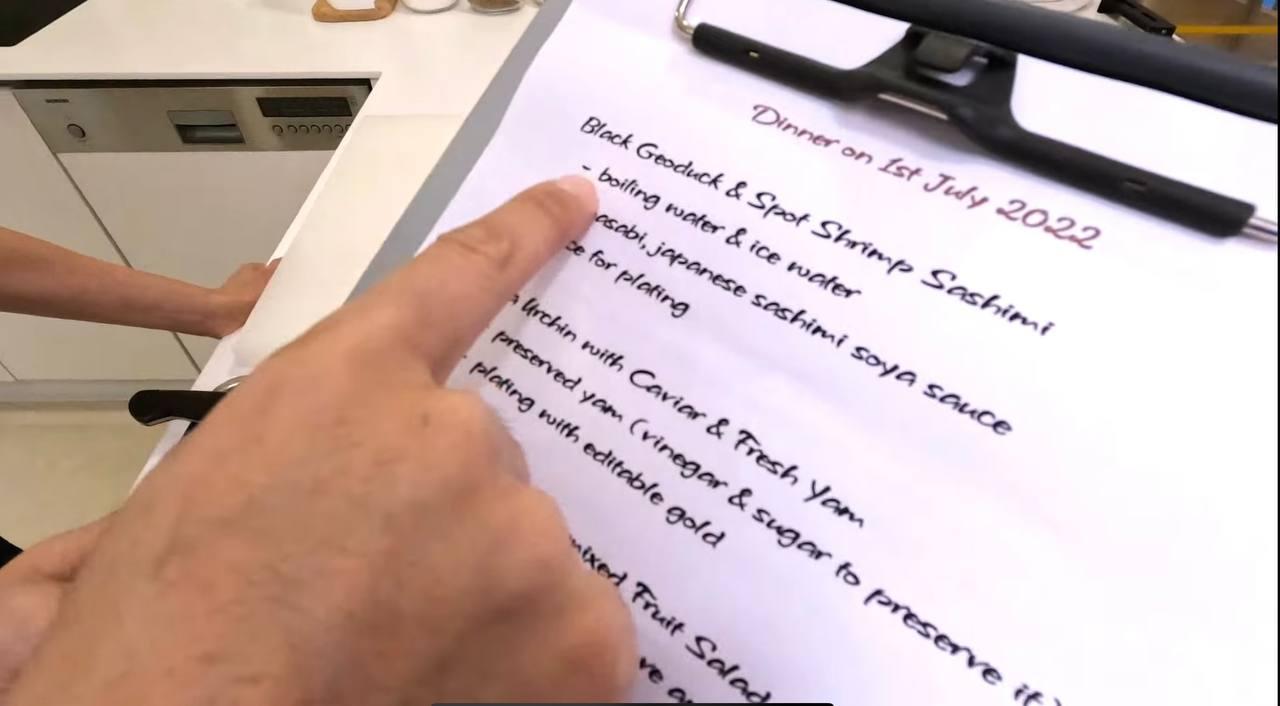 Dinner on 1st July 2022
Black Geoduck & Spot Shrimp Sashimi
- boiling water & ice water
asabi, japanese sashimi soya sauce
ce for plating
Urchin with Caviar & Fresh Yam
preserved yam (vinegar & sugar to preserve it)
- plating with editable gold
mixed Fruit Salad